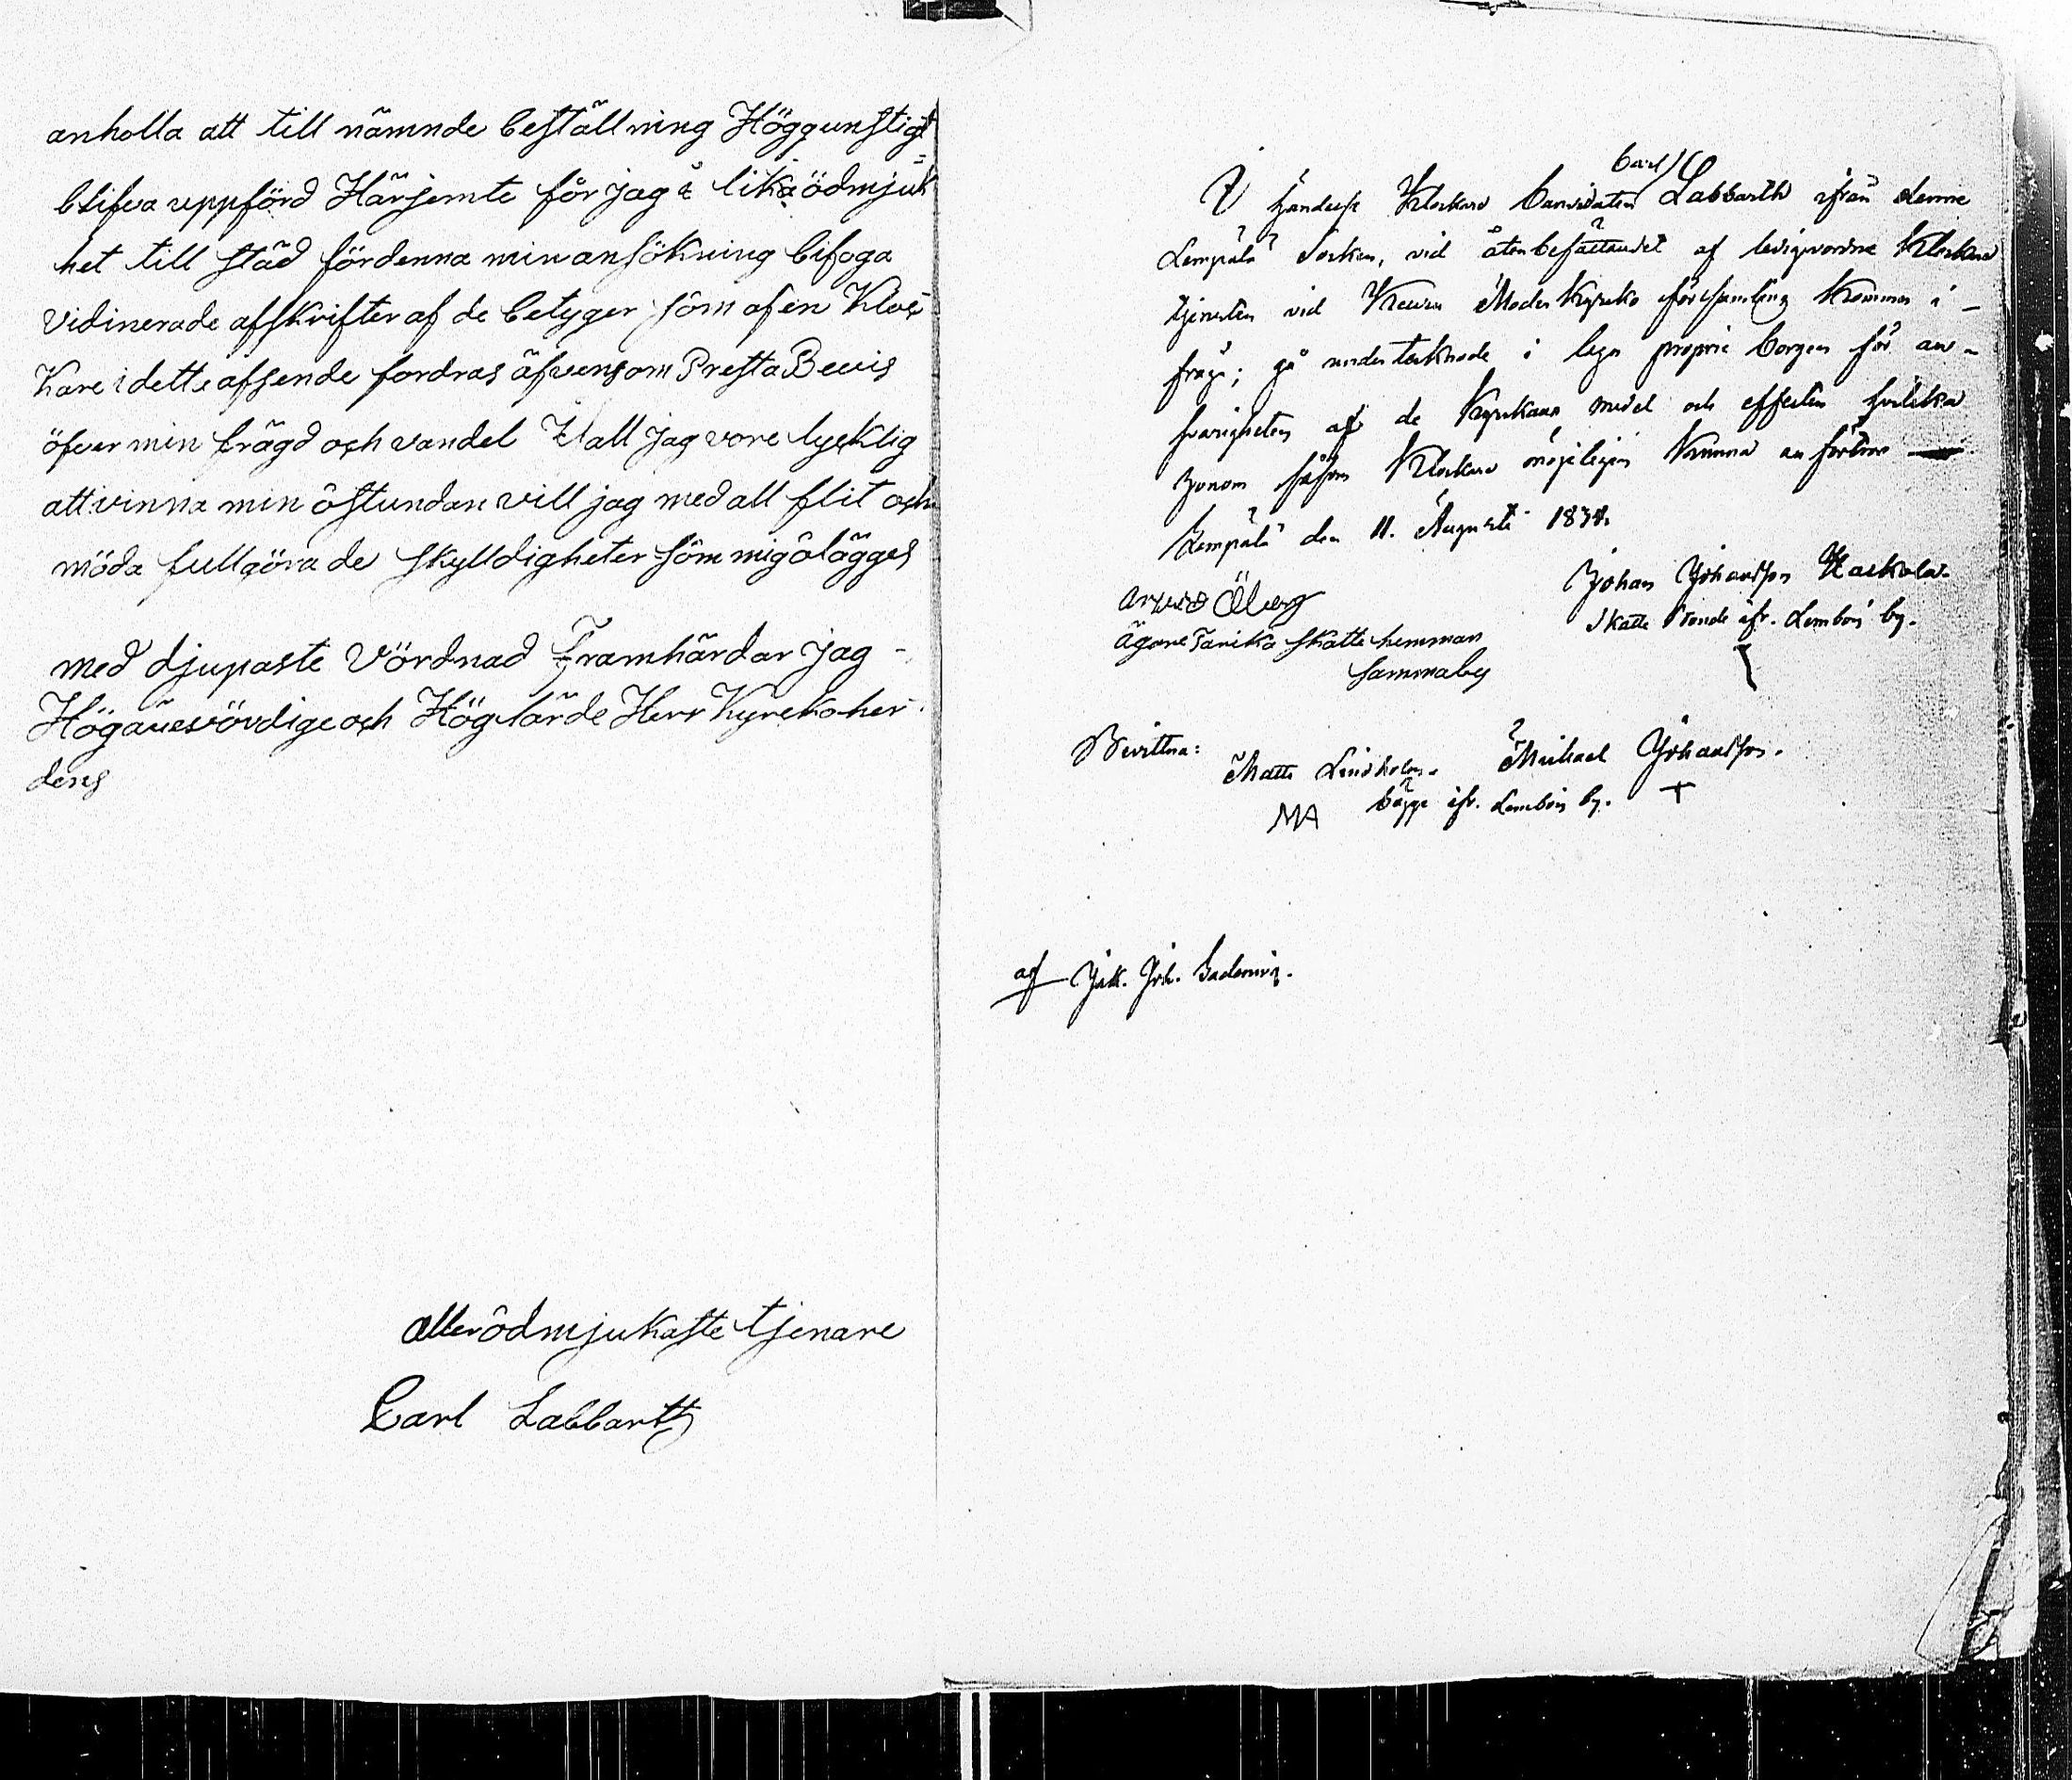 anholla att till nämnde beställning Höggunstigt
blifva uppförd Härjemte får jag i lika ödmjuk=
het till städ fördenna min ansökning bifoga
Vidinerade afskrifter af de betyger som af en Kloc-
kare i detta afsende fordras äfvensom Presta Bevis
öfver min frägd och vandel Hall jag vore lycklig
att vinna min åstundan vill jag med all flit och
möda fullgöra de skylldigheter som mig ålägges
med djupaste Vördnad Framhärdar jag -
Högärevördige och Höglärde Herr Kyrckoher-
dens
allerödmjukaste tjenare
Carl Labbarth
Carl
I händelse Klockare Candidaten Labbarth ifrån denne
Lempälä Socken, vid återbesättandet af ledigvordne Klockare
tjensten vid Keuru Moder Kyrcko församling kommer i
fråga; gå undertecknade i laga proprie borgen för an-
svarigheten af de Kyrckans medel och effecter hvilcka
honom såsom Klockare möjeligen kunna anförtros
Lempälä den 11. Augusti 1834.
Johan Johansson Hackola
Skatte Bonde ifr. Lembois by.
Arvid Öberg
ägare Tarika skatte hemman
samma by
Bevittna:
Matts Lindholm. Michael Johansson.
MA bägge ifr. Lembois by. +
af Jak. Joh.